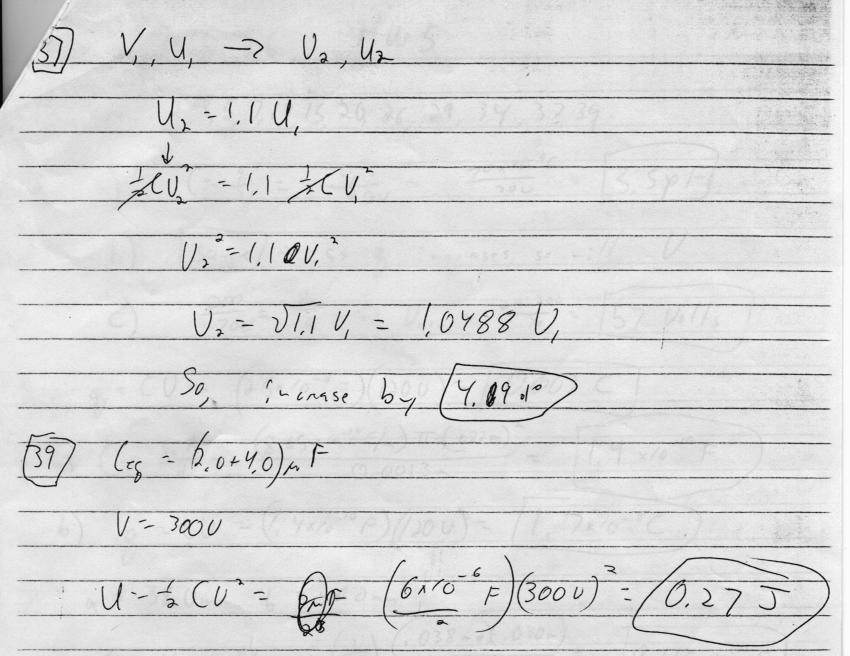 37 V₁, U₁ → V₂, U₂
U₂ = 1.1 U₁
↓
½CV₂² = 1.1 ½CV₁²
V₂² = 1.1 V₁²
V₂ = √1.1 V₁ = 1.0488 V₁
So, increase by 4.9%
39 Ceq = (2.0+4.0)μF
V = 300V
U = ½ CV² = (6x10⁻⁶ F / 2)(300V)² = 0.27 J